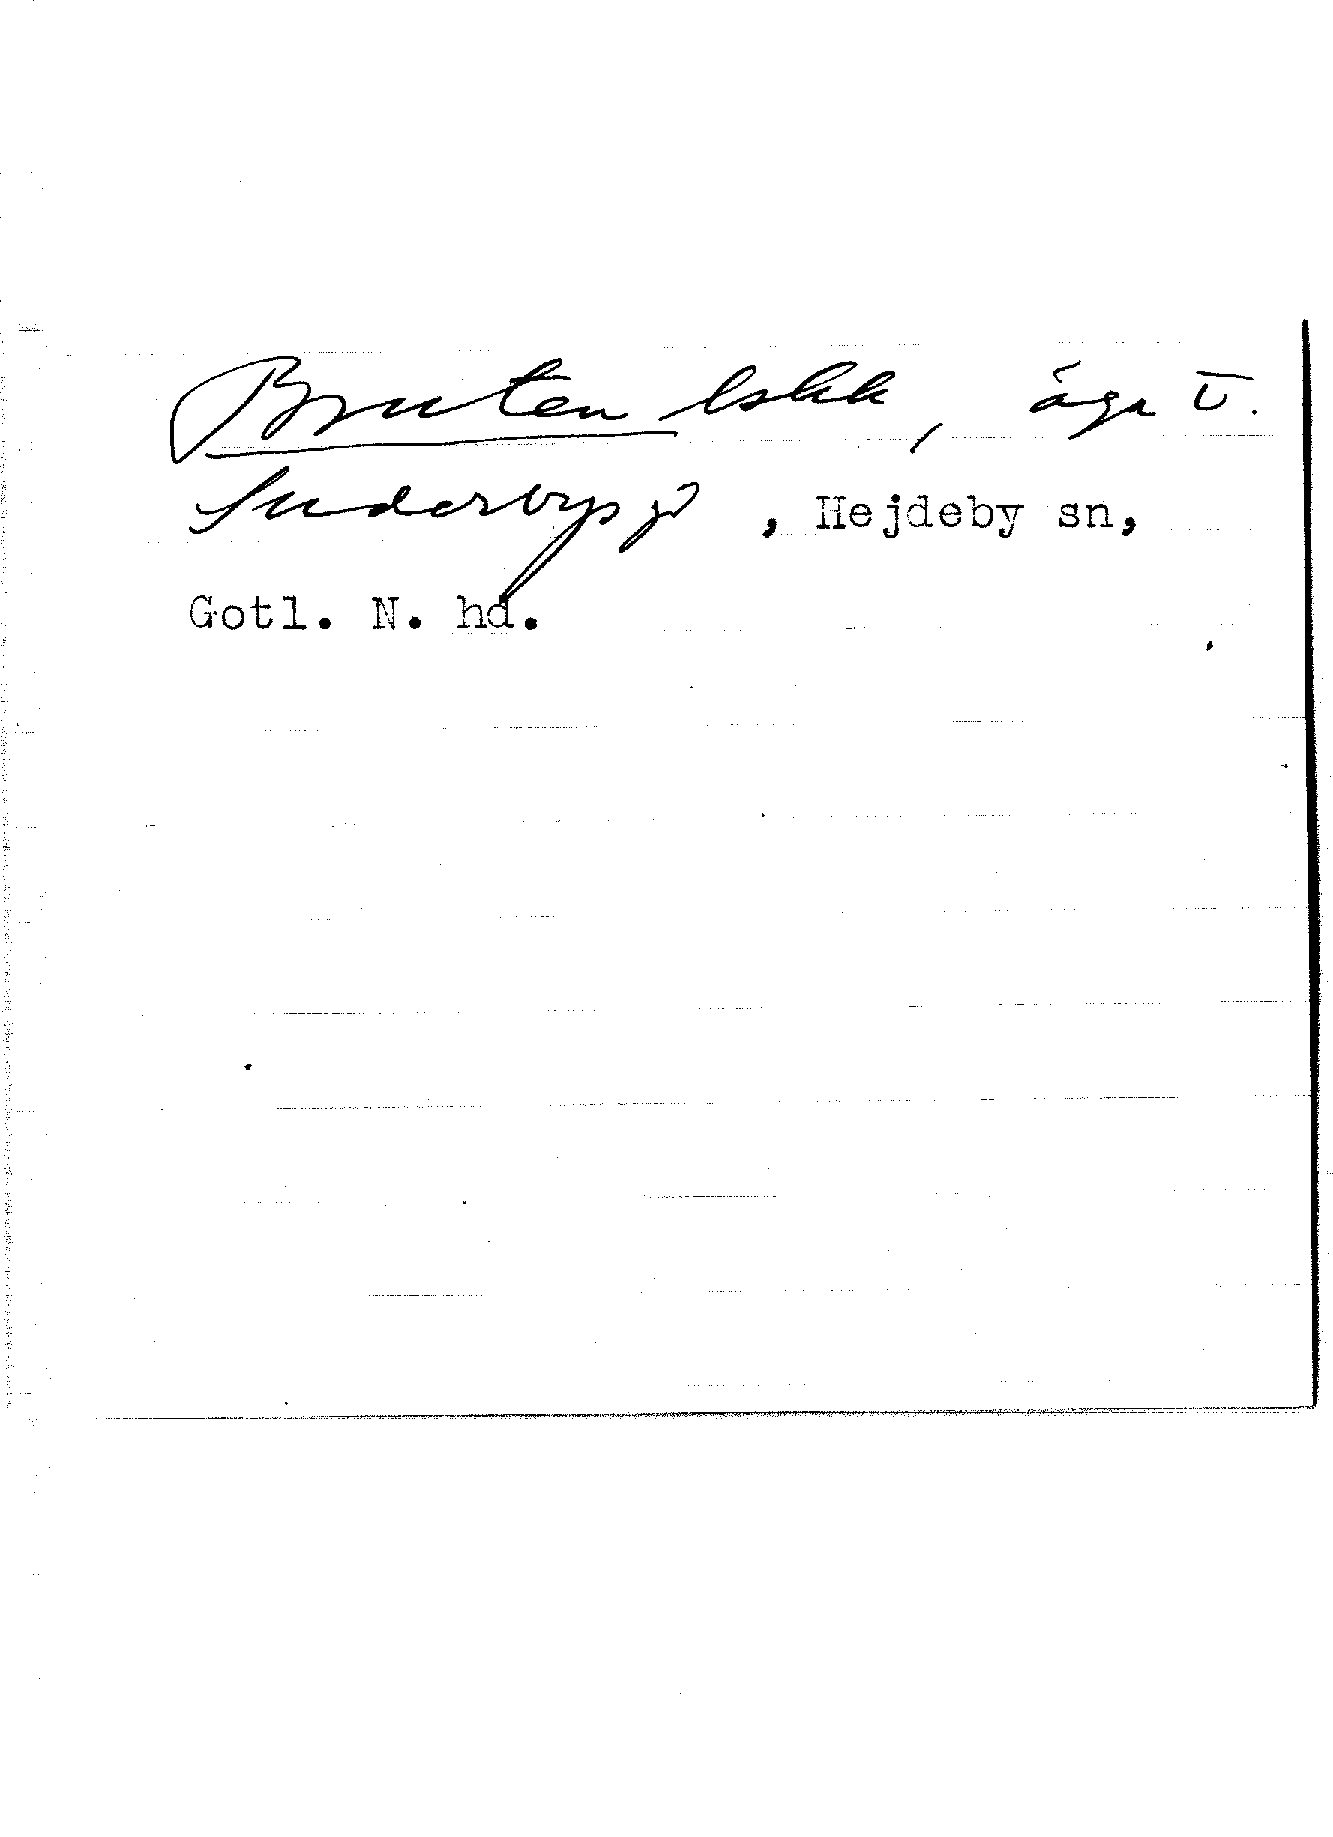 Bruten bskk, äga t.
Suderbys gd, Hejdeby sn,
Gotl. N. hd.